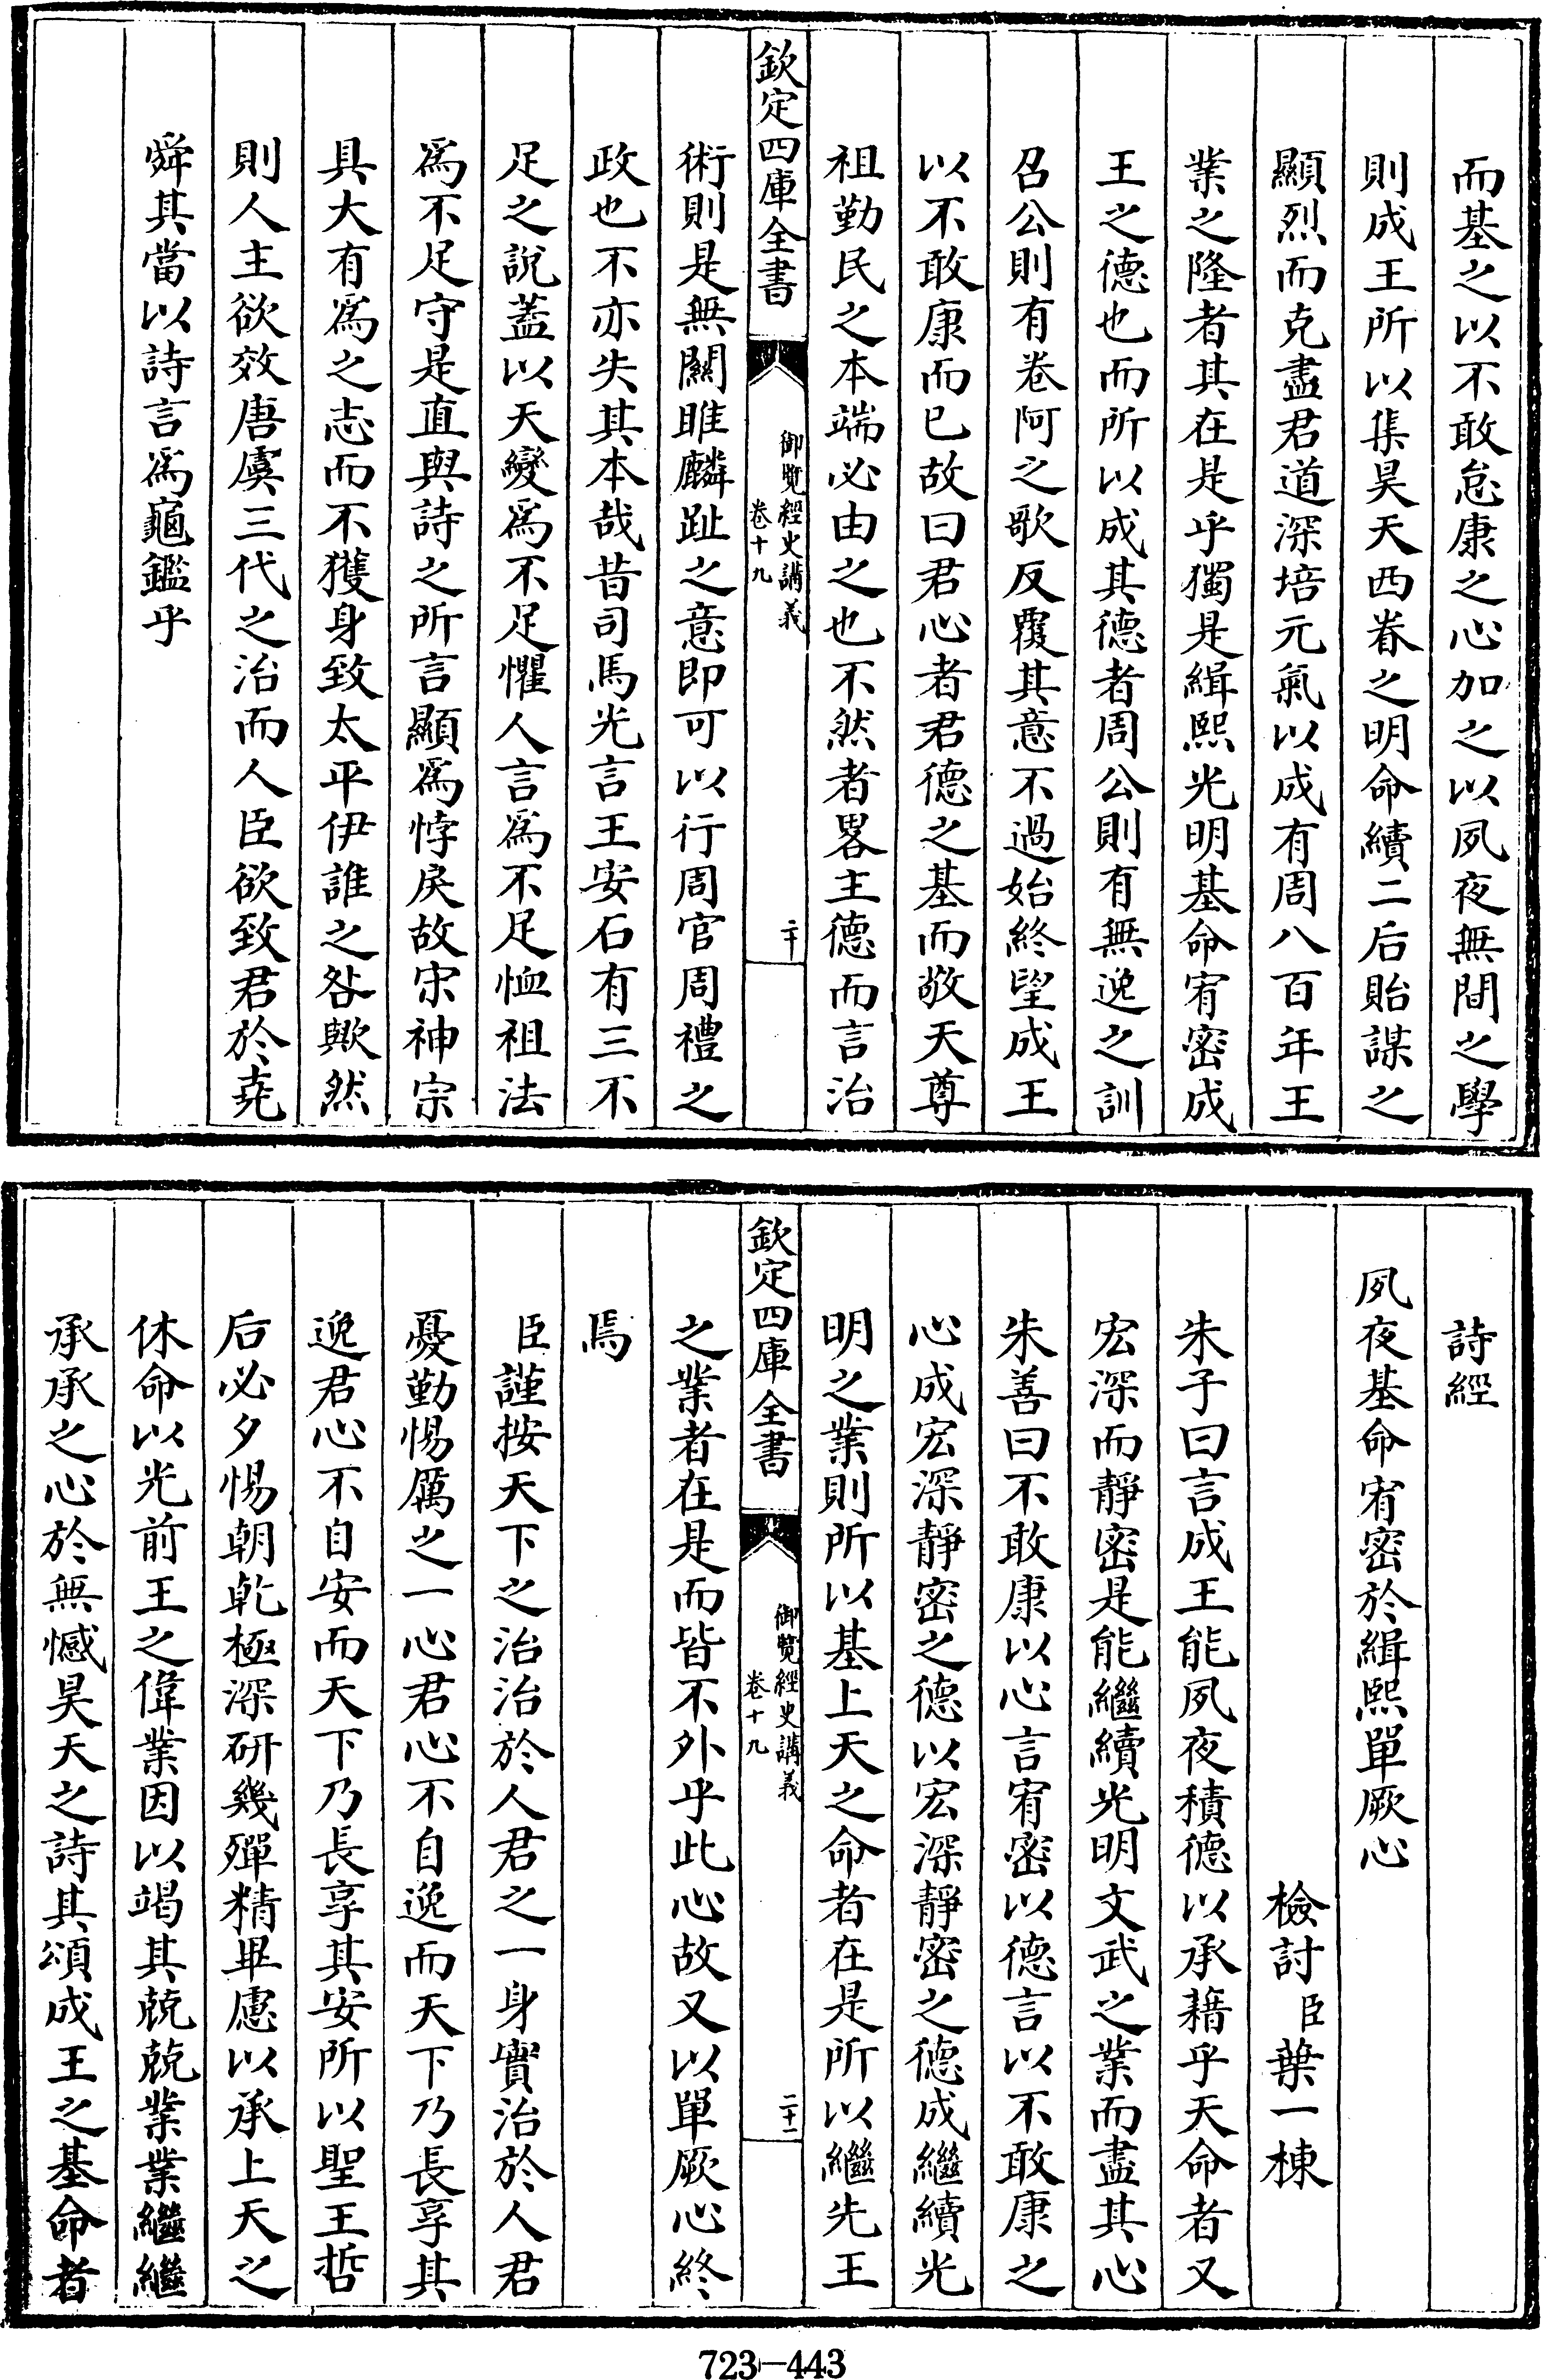 而基之以不敢怠康之心加之以夙夜無間之學
則成王所以集昊天西眷之明命續二后貽謀之
顯烈而克盡君道深培元氣以成有周八百年王
業之隆者其在是乎獨是緝熙光明基命宥密成
王之德也而所以成其德者周公則有無逸之訓
召公則有卷阿之歌反覆其意不過始終望成王
以不敢康而已故曰君心者君德之基而敬天尊
祖勤民之本端必由之也不然者畧主德而言治
欽定四庫全書
御覽經史講義
卷十九
二十
術則是無關雎麟趾之意即可以行周官周禮之
政也不亦失其本哉昔司馬光言王安石有三不
足之說蓋以天變為不足懼人言為不足恤祖法
為不足守是直與詩之所言顯為悖戾故宋神宗
具大有為之志而不獲身致太平伊誰之咎歟然
則人主欲效唐虞三代之治而人臣欲致君於堯
舜其當以詩言為龜鑑乎
詩經
夙夜基命宥密於緝熙單厥心
檢討臣葉一棟
朱子曰言成王能夙夜積德以承藉乎天命者又
宏深而靜密是能繼續光明文武之業而盡其心
朱善曰不敢康以心言宥密以德言以不敢康之
心成宏深靜密之德以宏深靜密之德成繼續光
明之業則所以基上天之命者在是所以繼先王
欽定四庫全書
御覽經史講義
卷十九
二十一
之業者在是而皆不外乎此心故又以單厥心終
焉
臣謹按天下之治治於人君之一身實治於人君
憂勤惕厲之一心君心不自逸而天下乃長享其
逸君心不自安而天下乃長享其安所以聖王哲
后必夕惕朝乾極深研幾殫精畢慮以承上天之
休命以光前王之偉業因以竭其兢兢業業繼繼
承承之心於無憾昊天之詩其頌成王之基命者
723-443